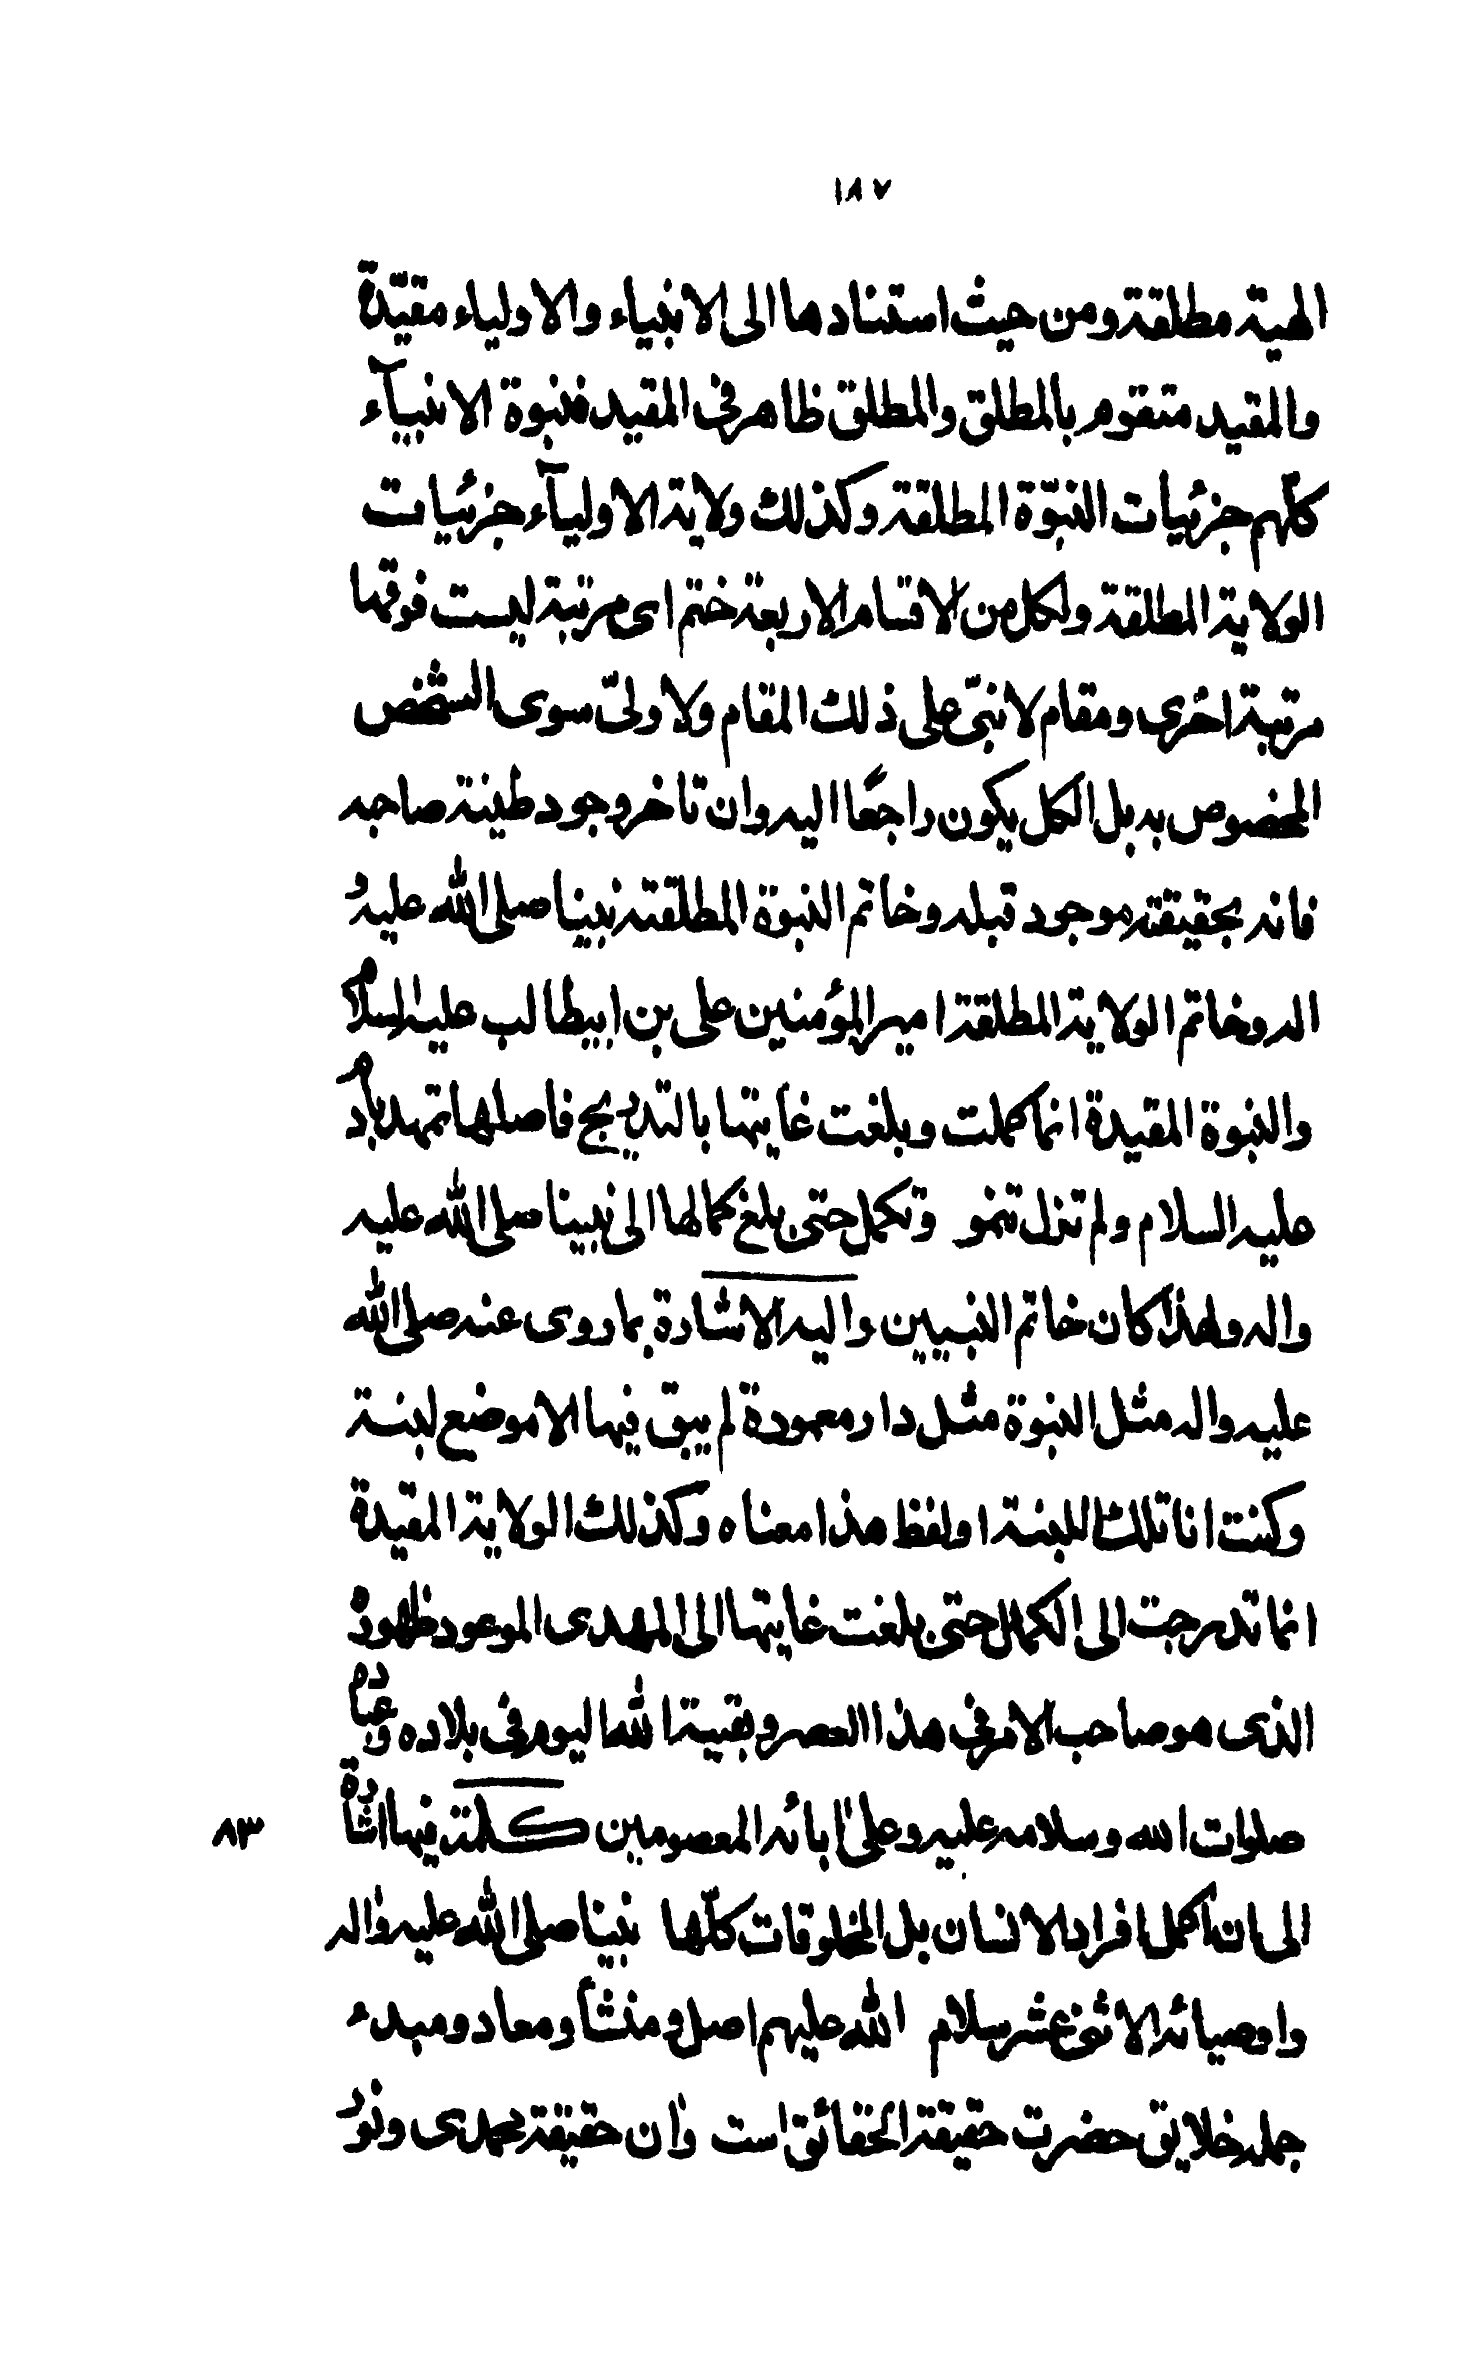 ١٨٧
الهية مطلقة ومن حيث استنادها الى الانبياء والاولياء مقيّدة
والمقيد متقوم بالمطلق والمطلق ظاهر فى المقيد فنبوة الانبيآء
كلّهم جزئيات النبوّة المطلقة وكذلك ولاية الاوليآء جزئيات
الولاية المطلقة ولكل من الاقسام الاربعة ختم اى مرتبة ليست فوقها
مرتبة اخرى ومقام لا نبىّ على ذلك المقام ولا ولىّ سوى الشخص
المخصوص به بل الكل يكون راجعًا اليه وان تاخر وجود طينة صاحبه
فانه بحقيقته موجود قبله وخاتم النبوة المطلقة نبينا صلى الله عليه و
اله وخاتم الولاية المطلقة امير المؤمنين على بن ابيطالب عليه السلام
والنبوة المقيدة انما كملت وبلغت غايتها بالتدريج فاصلها تمهد بادم
عليه السلام ولم تزل تنمو وتكمل حتى بلغ كمالها الى نبينا صلى الله عليه
واله ولهذا كان خاتم النبيين واليه الاشارة بما روى عنه صلى الله
عليه واله مثل النبوة مثل دار معمودة لم يبق فيها الا موضع لبنة
وكنت انا تلك اللبنة او لفظ هذا معناه وكذلك الولاية المقيدة
انما تدرجت الى الكمال حتى بلغت غايتها الى المهدى الموعود ظهوره
الذى هو صاحب الامر فى هذا العصر وبقية الله اليوم فى بلاده وعباده
صلوات الله وسلامه عليه وعلى ابائه المعصومين كلمة فيها اشارة
٨٣
الى ان اكمل افراد الانسان بل المخلوقات كلّها نبينا صلى الله عليه واله
واوصيائه الاثنى عشر سلام الله عليهم اصل ومنشأ ومعاد ومبدء
جمله خلايق حضرت حقيقة الحقائق است وان حقيقة محمدى ونور